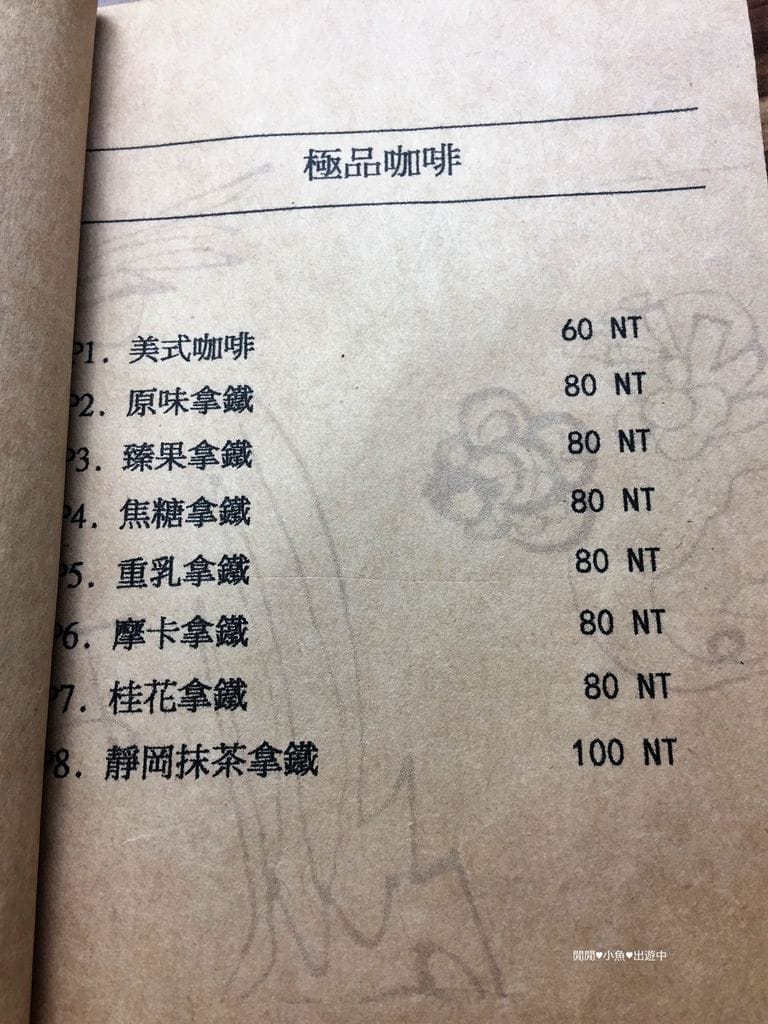 極品咖啡
P1. 美式咖啡 60 NT
P2. 原味拿鐵 80 NT
P3. 臻果拿鐵 80 NT
P4. 焦糖拿鐵 80 NT
P5. 重乳拿鐵 80 NT
P6. 摩卡拿鐵 80 NT
P7. 桂花拿鐵 80 NT
P8. 靜岡抹茶拿鐵 100 NT
閒閒♥小魚♥出遊中